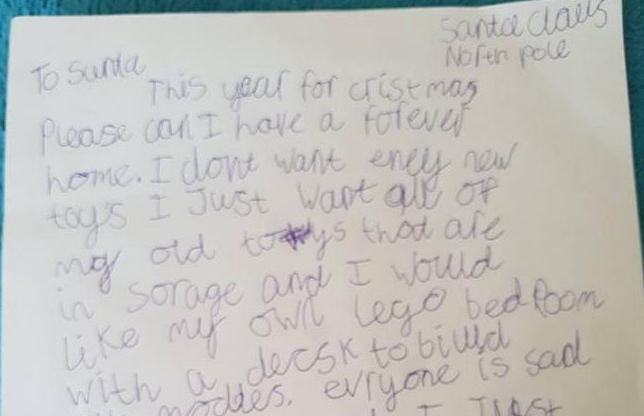 Santa Claus
North pole
To Santa
This year for cristmas
Please can I have a forever
home. I dont want eney new
toys I Just want all of
my old toys thad are
in sorage and I would
like my own lego bedroom
with a decsk to biuld
moddes. evryone is sad
I Just